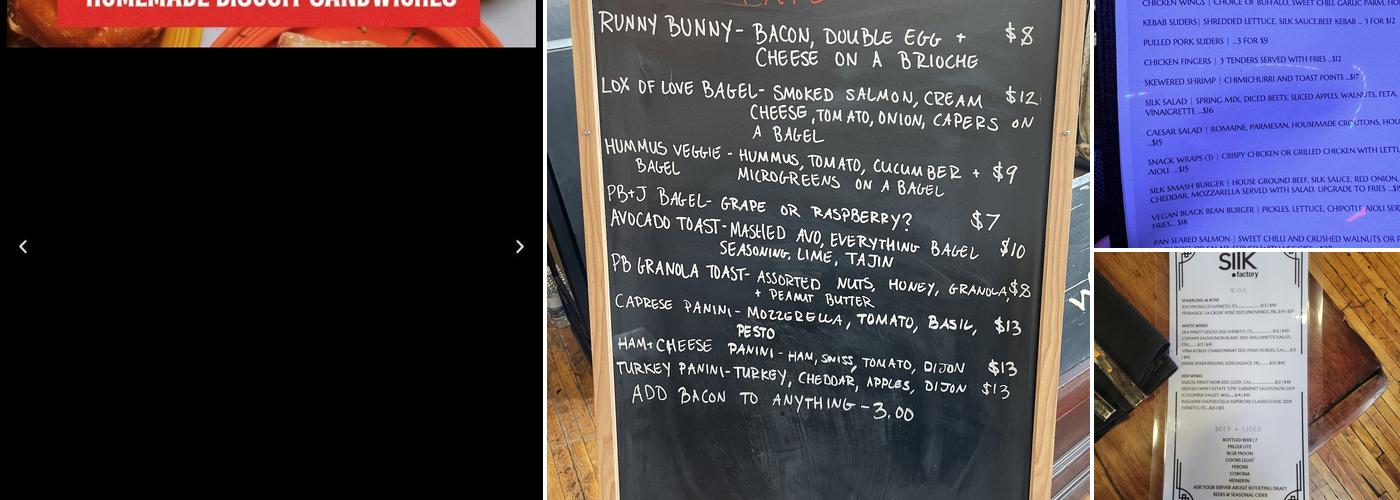 HOMEMADE BISCUIT SANDWICHES
RUNNY BUNNY- BACON, DOUBLE EGG + $8
CHEESE ON A BRIOCHE
LOX OF LOVE BAGEL- SMOKED SALMON, CREAM $12
CHEESE, TOMATO, ONION, CAPERS ON
A BAGEL
HUMMUS VEGGIE - HUMMUS, TOMATO, CUCUMBER + $9
BAGEL MICROGREENS ON A BAGEL
PB+J BAGEL- GRAPE OR RASPBERRY? $7
AVOCADO TOAST-MASHED AVO, EVERYTHING BAGEL $10
SEASONING, LIME, TAJIN
PB GRANOLA TOAST- ASSORTED NUTS, HONEY, GRANOLA, $8
+ PEANUT BUTTER
CAPRESE PANINI- MOZZERELLA, TOMATO, BASIL, $13
PESTO
HAM+CHEESE PANINI - HAM, SWISS, TOMATO, DIJON $13
TURKEY PANINI-TURKEY, CHEDDAR, APPLES, DIJON $13
ADD BACON TO ANYTHING -3.00
CHICKEN WINGS | CHOICE OF BUFFALO, SWEET CHILI, GARLIC PARM,
KEBAB SLIDERS| SHREDDED LETTUCE, SILK SAUCE,BEEF KEBAB ... 3 FOR $12
PULLED PORK SLIDERS | ...3 FOR $9
CHICKEN FINGERS | 3 TENDERS SERVED WITH FRIES ...$12
SKEWERED SHRIMP | CHIMICHURRI AND TOAST POINTS ...$17
SILK SALAD | SPRING MIX, DICED BEETS, SLICED APPLES, WALNUTS, FETA,
VINAIGRETTE ...$16
CAESAR SALAD | ROMAINE, PARMESAN, HOUSEMADE CROUTONS,
...$15
SNACK WRAPS (3) | CRISPY CHICKEN OR GRILLED CHICKEN WITH
AIOLI ...$15
SILK SMASH BURGER | HOUSE GROUND BEEF, SILK SAUCE, RED ONION,
CHEDDAR, MOZZARELLA SERVED WITH SALAD. UPGRADE TO FRIES
VEGAN BLACK BEAN BURGER | PICKLES, LETTUCE, CHIPOTLE AIOLI
FRIES... $18
PAN SEARED SALMON | SWEET CHILLI AND CRUSHED WALNUTS OR
SILK
factory
WINE
SPARKLING & ROSÉ
WHITE WINES
RED WINES
BEER + CIDER
BOTTLED BEER | 7
MILLER LITE
BLUE MOON
COORS LIGHT
PERONI
CORONA
HEINEKIN
ASK YOUR SERVER ABOUT ROTATING DRAFT
BEERS & SEASONAL CIDER